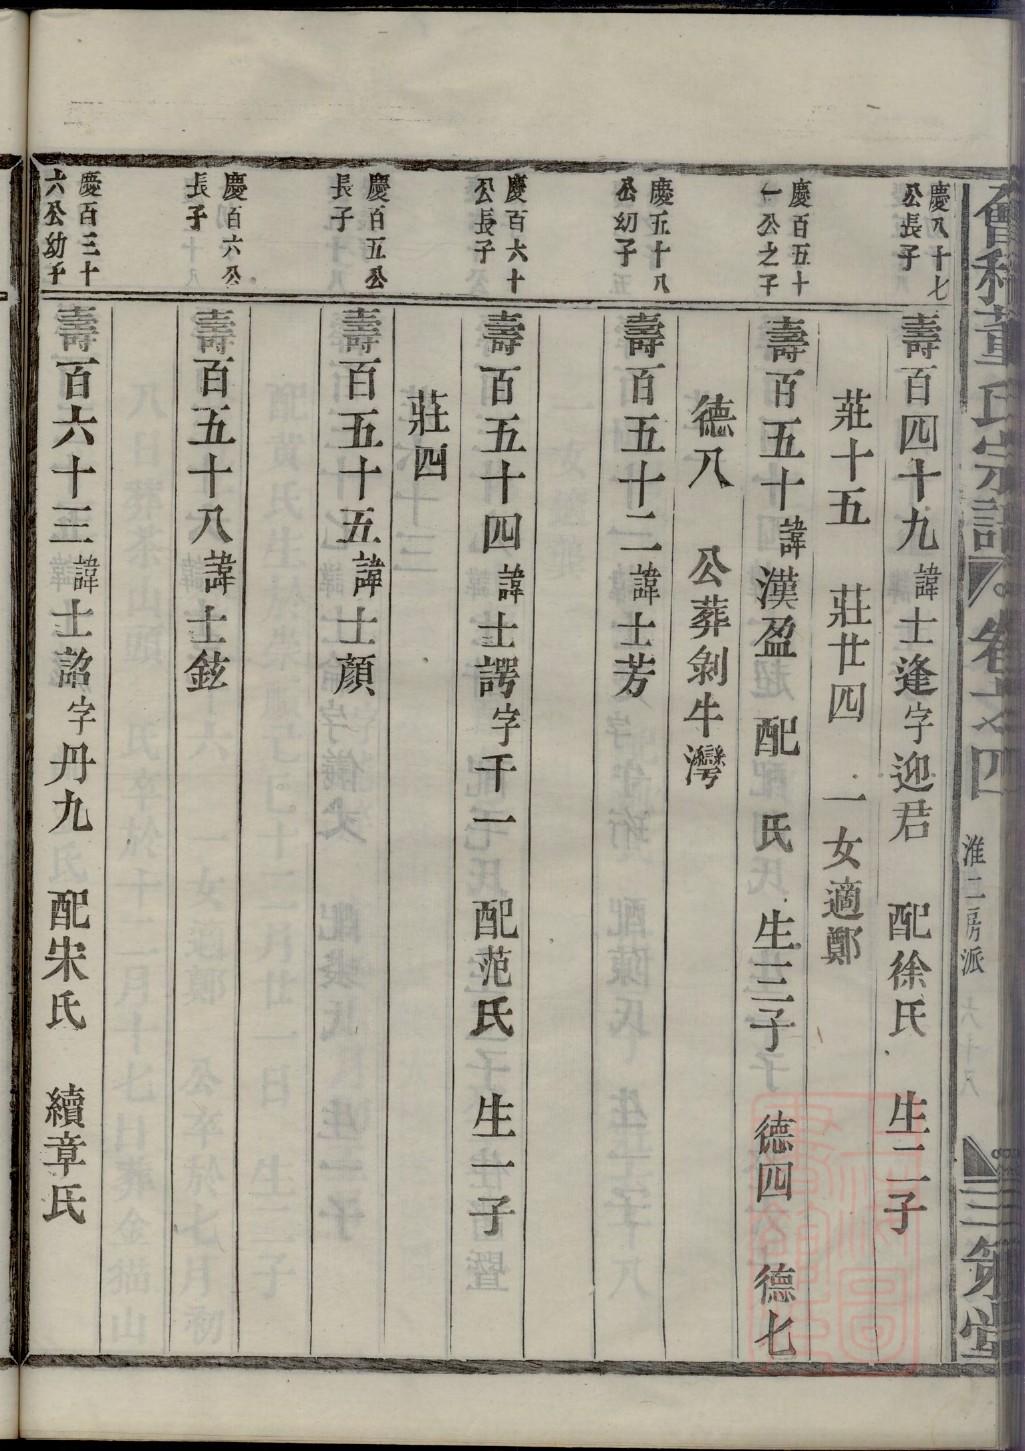 會稽董氏宗譜 卷之四 淮二房派 六十八 三策堂
慶八十七
公長子
壽百四十九諱士逢字迎君 配徐氏 生二子
莊十五 莊廿四 一女適鄭
慶百五十
一公之子
壽百五十諱漢盈 配 氏 生三子 德四 德七
德八 公葬剝牛灣
慶五十八
公幼子
壽百五十二諱士芳
慶百六十
公長子
壽百五十四諱士諤字千一 配范氏 生一子
莊四
慶百五公
長子
壽百五十五諱士顏
慶百六公
長子
壽百五十八諱士鉉
慶百三十
六公幼子
壽百六十三諱士詔字丹九 配宋氏 續章氏